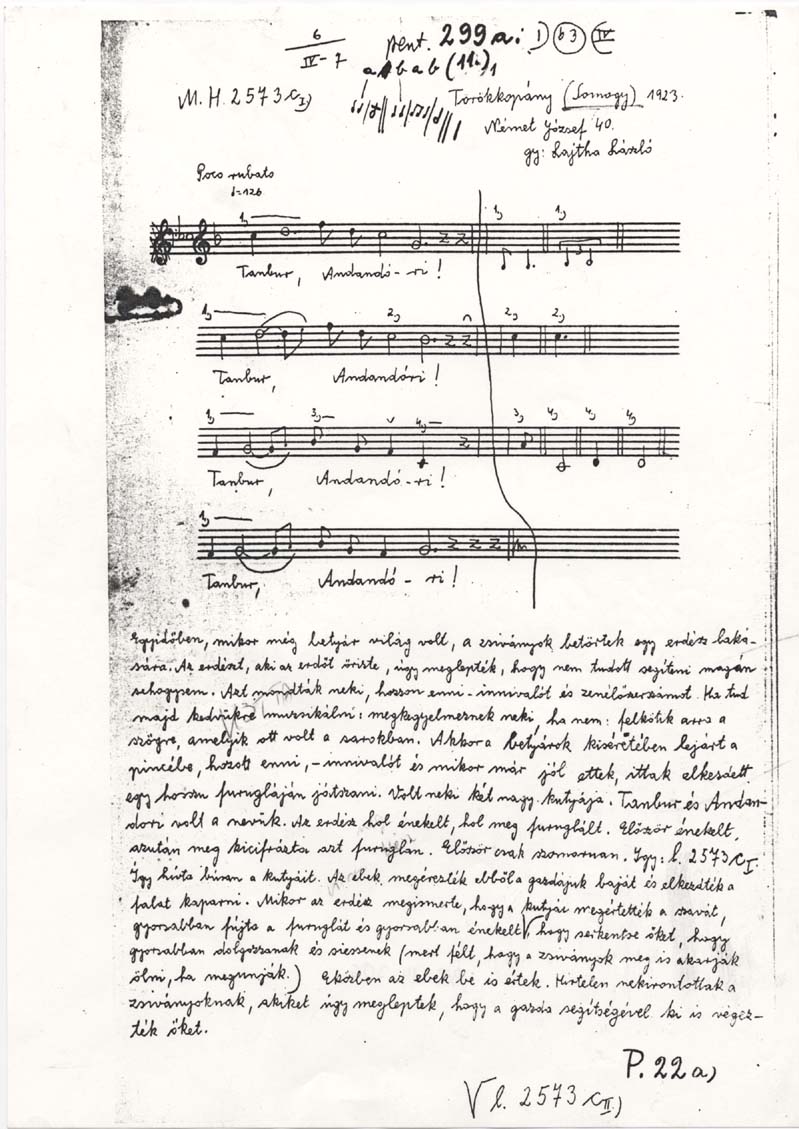 6
IV-7
pent. 299a: I) b3 IV
a b a b (11i)1
M.H. 2573 c I)
Törökkopány (Somogy) 1923.
Német József 40.
gy: Lajtha László
Poco rubato
♩=126
1) 1) 1)
Tanbur, Andandó-ri!
1) 2) 2) 2)
Tanbur, Andandóri!
1) 3) 4) 3) 4) 4) 4)
Tanbur, Andandó-ri!
1)
Tanbur, Andandó-ri!
Egyidőben, mikor még betyár világ volt, a zsiványok betörtek egy erdész laká-
sára. Az erdészt, aki az erdőt őrizte, úgy meglepték, hogy nem tudott segíteni magán
sehogysem. Azt mondták neki, hozzon enni-innivalót és zenélőszerszámot. Ha tud
majd kedvükre muzsikálni: megkegyelmeznek neki, ha nem: felkötik arra a
szögre, amelyik ott volt a sarokban. Akkor a betyárok kíséretében lejárt a
pincébe, hozott enni,-innivalót és mikor már jól ettek, ittak elkezdett
egy hosszu furugláján játszani. Volt neki két nagy kutyája. Tanbur és Andan-
dori volt a nevük. Az erdész hol énekelt, hol meg furuglált. Először énekelt,
azután meg kicifrázta azt furuglán. Először csak szomoruan. Igy: l. 2573 c I.
Így hívta búsan a kutyáit. Az ebek megérezték ebből a gazdájuk baját és elkezdték a
falat kaparni. Mikor az erdész megismerte, hogy a kutyái megértették a szavát,
gyorsabban fújta a furuglát és gyorsabban énekelt, hogy serkentse őket, hogy
gyorsabban dolgozzanak és siessenek (mert félt, hogy a zsiványok meg is akarják
ölni, ha megunják.) Eközben az ebek be is értek. Hirtelen nekirontottak a
zsiványoknak, akiket úgy megleptek, hogy a gazda segítségével ki is végez-
ték őket.
P. 22a)
V l. 2573 c II)